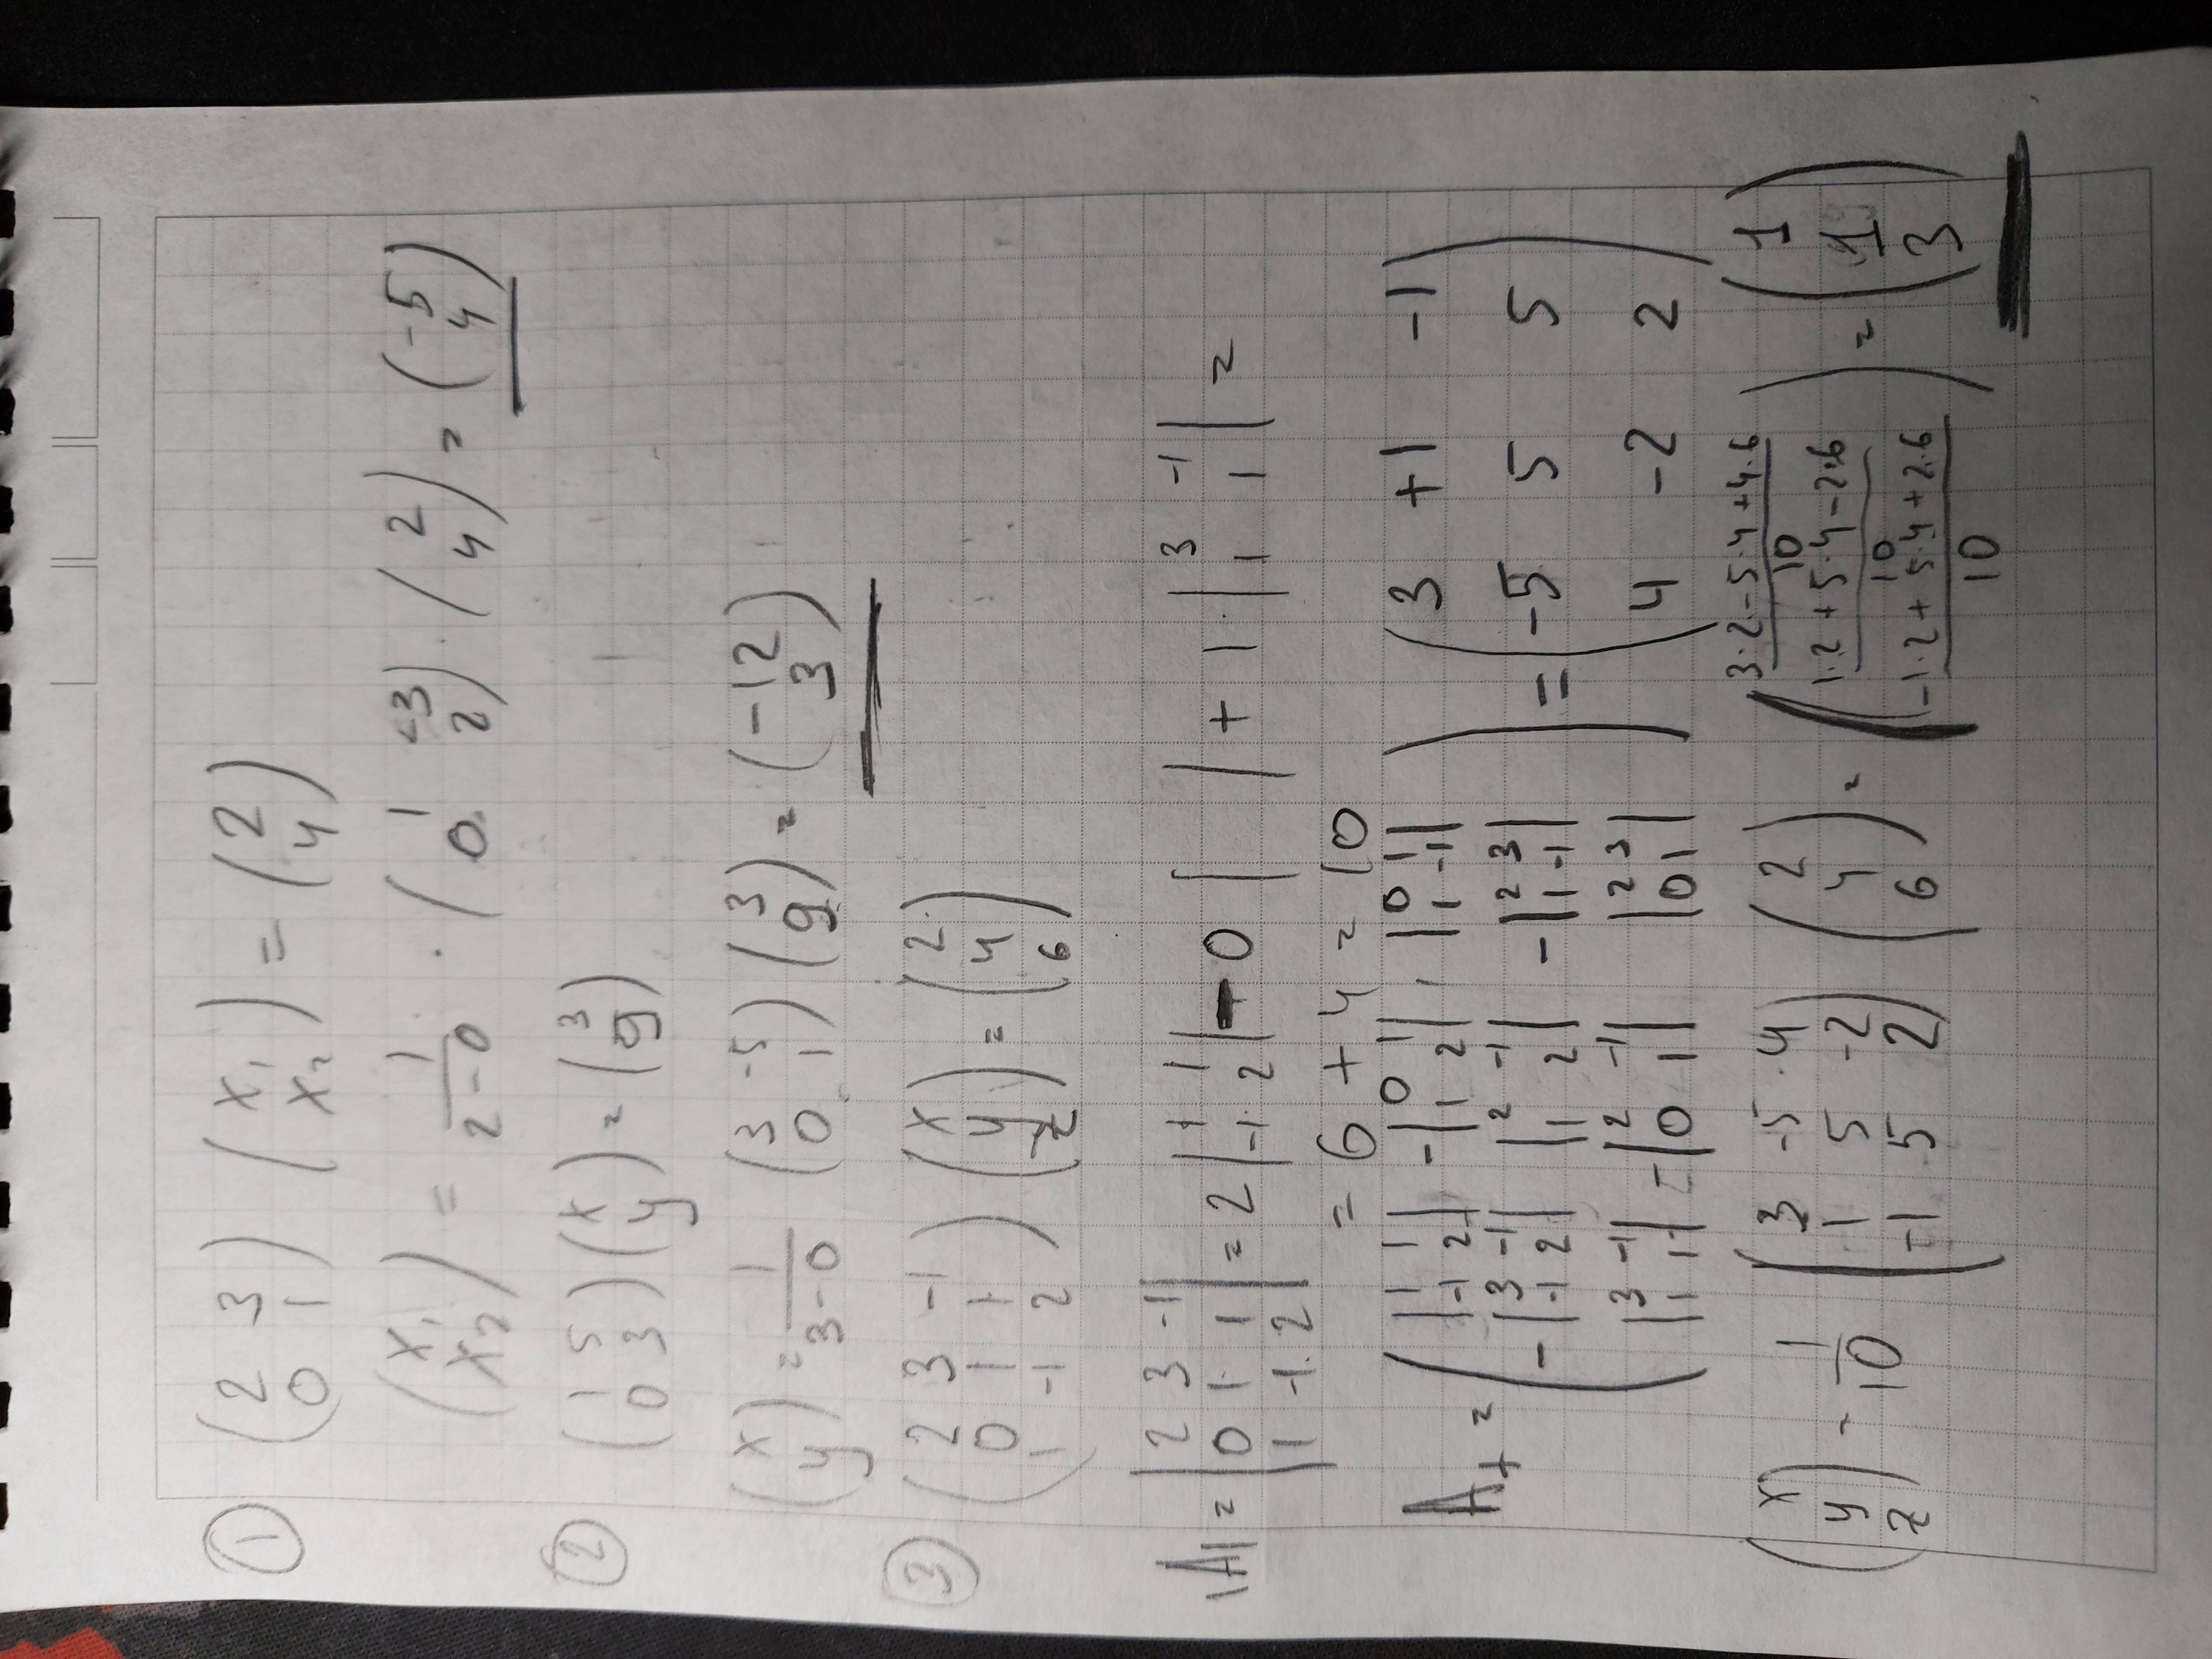 ① (2 3; 0 1) (x₁; x₂) = (2; 4)
(x₁; x₂) = 1/(2-0) · (1 -3; 0 2) · (2; 4) = (-5; 4)
② (1 5; 0 3) (x; y) = (3; 9)
(x; y) = 1/(3-0) (3 -5; 0 1) (3; 9) = (-12; 3)
③ (2 3 -1; 0 1 1; 1 -1 2) (x; y; z) = (2; 4; 6)
|A| = |2 3 -1; 0 1 1; 1 -1 2| = 2 |1 1; -1 2| - 0 | | + 1 · |3 -1; 1 1| =
= 6 + 4 = 10
A₊ = (|1 1; -1 2| -|0 1; 1 2| |0 1; 1 -1|; -|3 -1; -1 2| |2 -1; 1 2| -|2 3; 1 -1|; |3 -1; 1 1| -|2 -1; 0 1| |2 3; 0 1|) = (3 +1 -1; -5 5 5; 4 -2 2)
(x; y; z) = 1/10 (3 -5 4; 1 5 -2; -1 5 2) (2; 4; 6) = ((3·2-5·4+4·6)/10; (1·2+5·4-2·6)/10; (-1·2+5·4+2·6)/10) = (1; 1; 3)